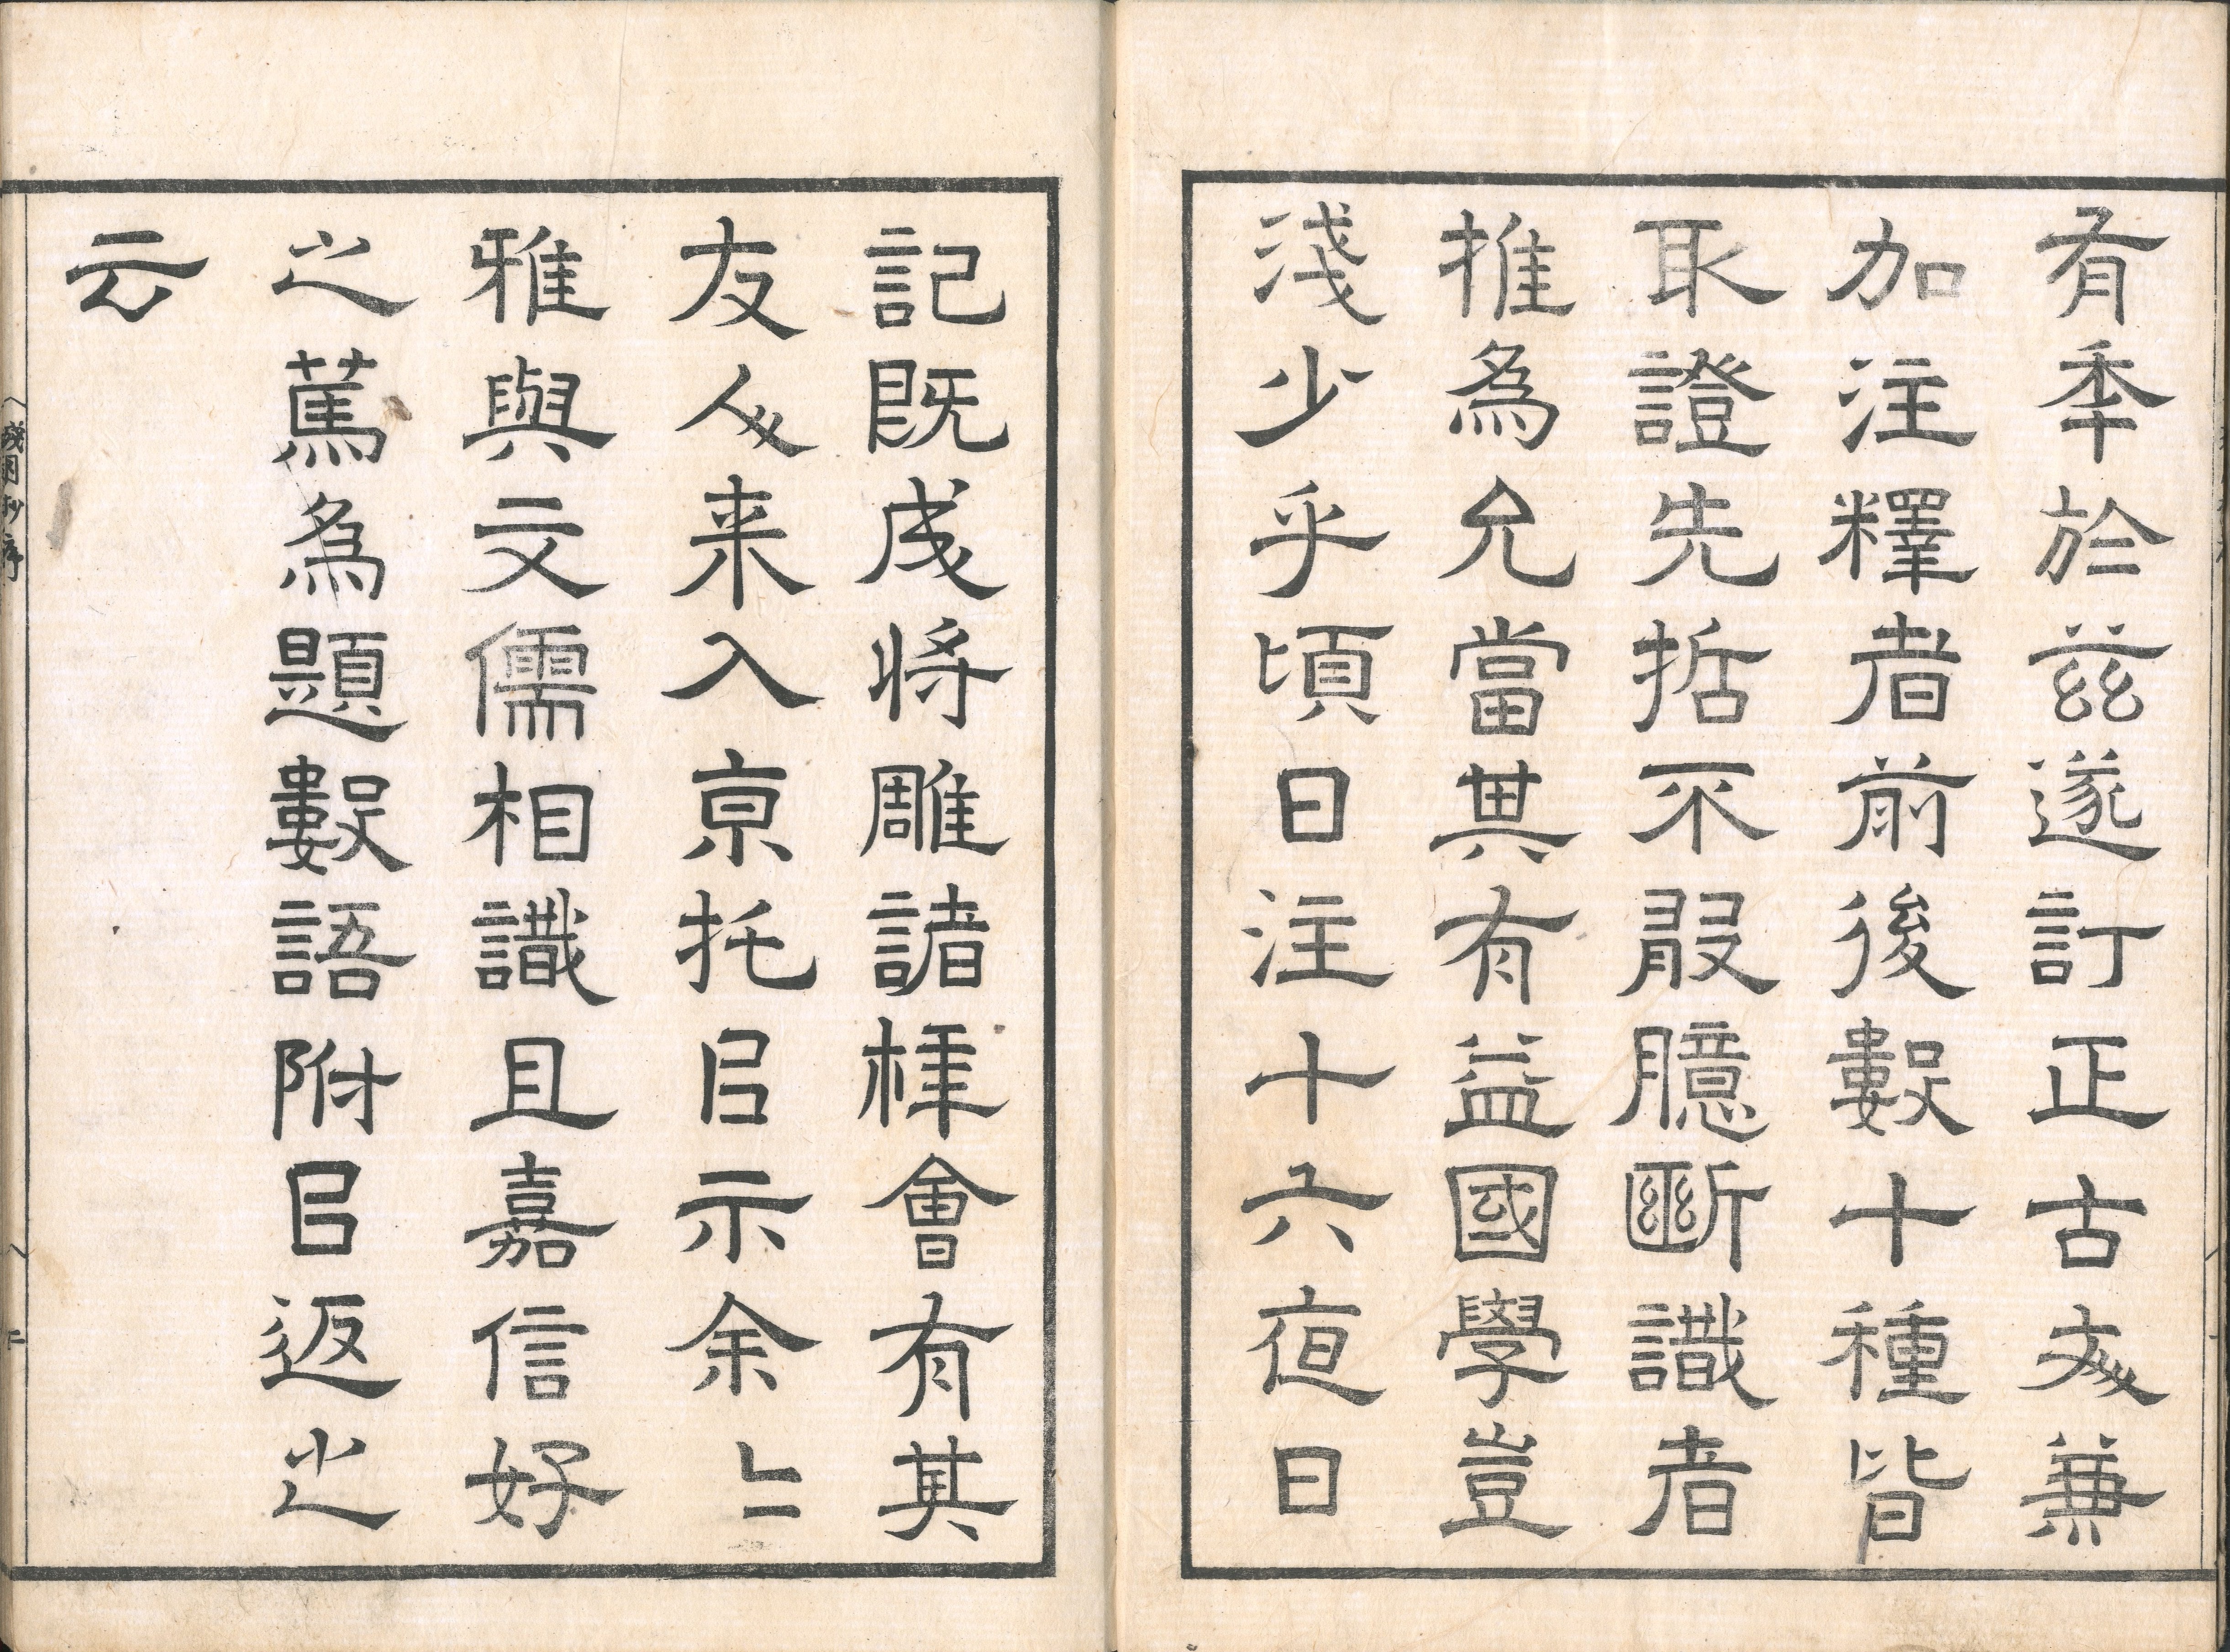 有季於茲遂訂正古文兼
加注釋者前後數十種皆
取證先哲不敢臆斷識者
推為允當其有益國學豈
淺少乎頃日注十六夜日
記既成將雕諸梓會有其
友人来入京托㠯示余々
雅與文儒相識且嘉信好
之篤為題數語附㠯返之
云
殘月抄序